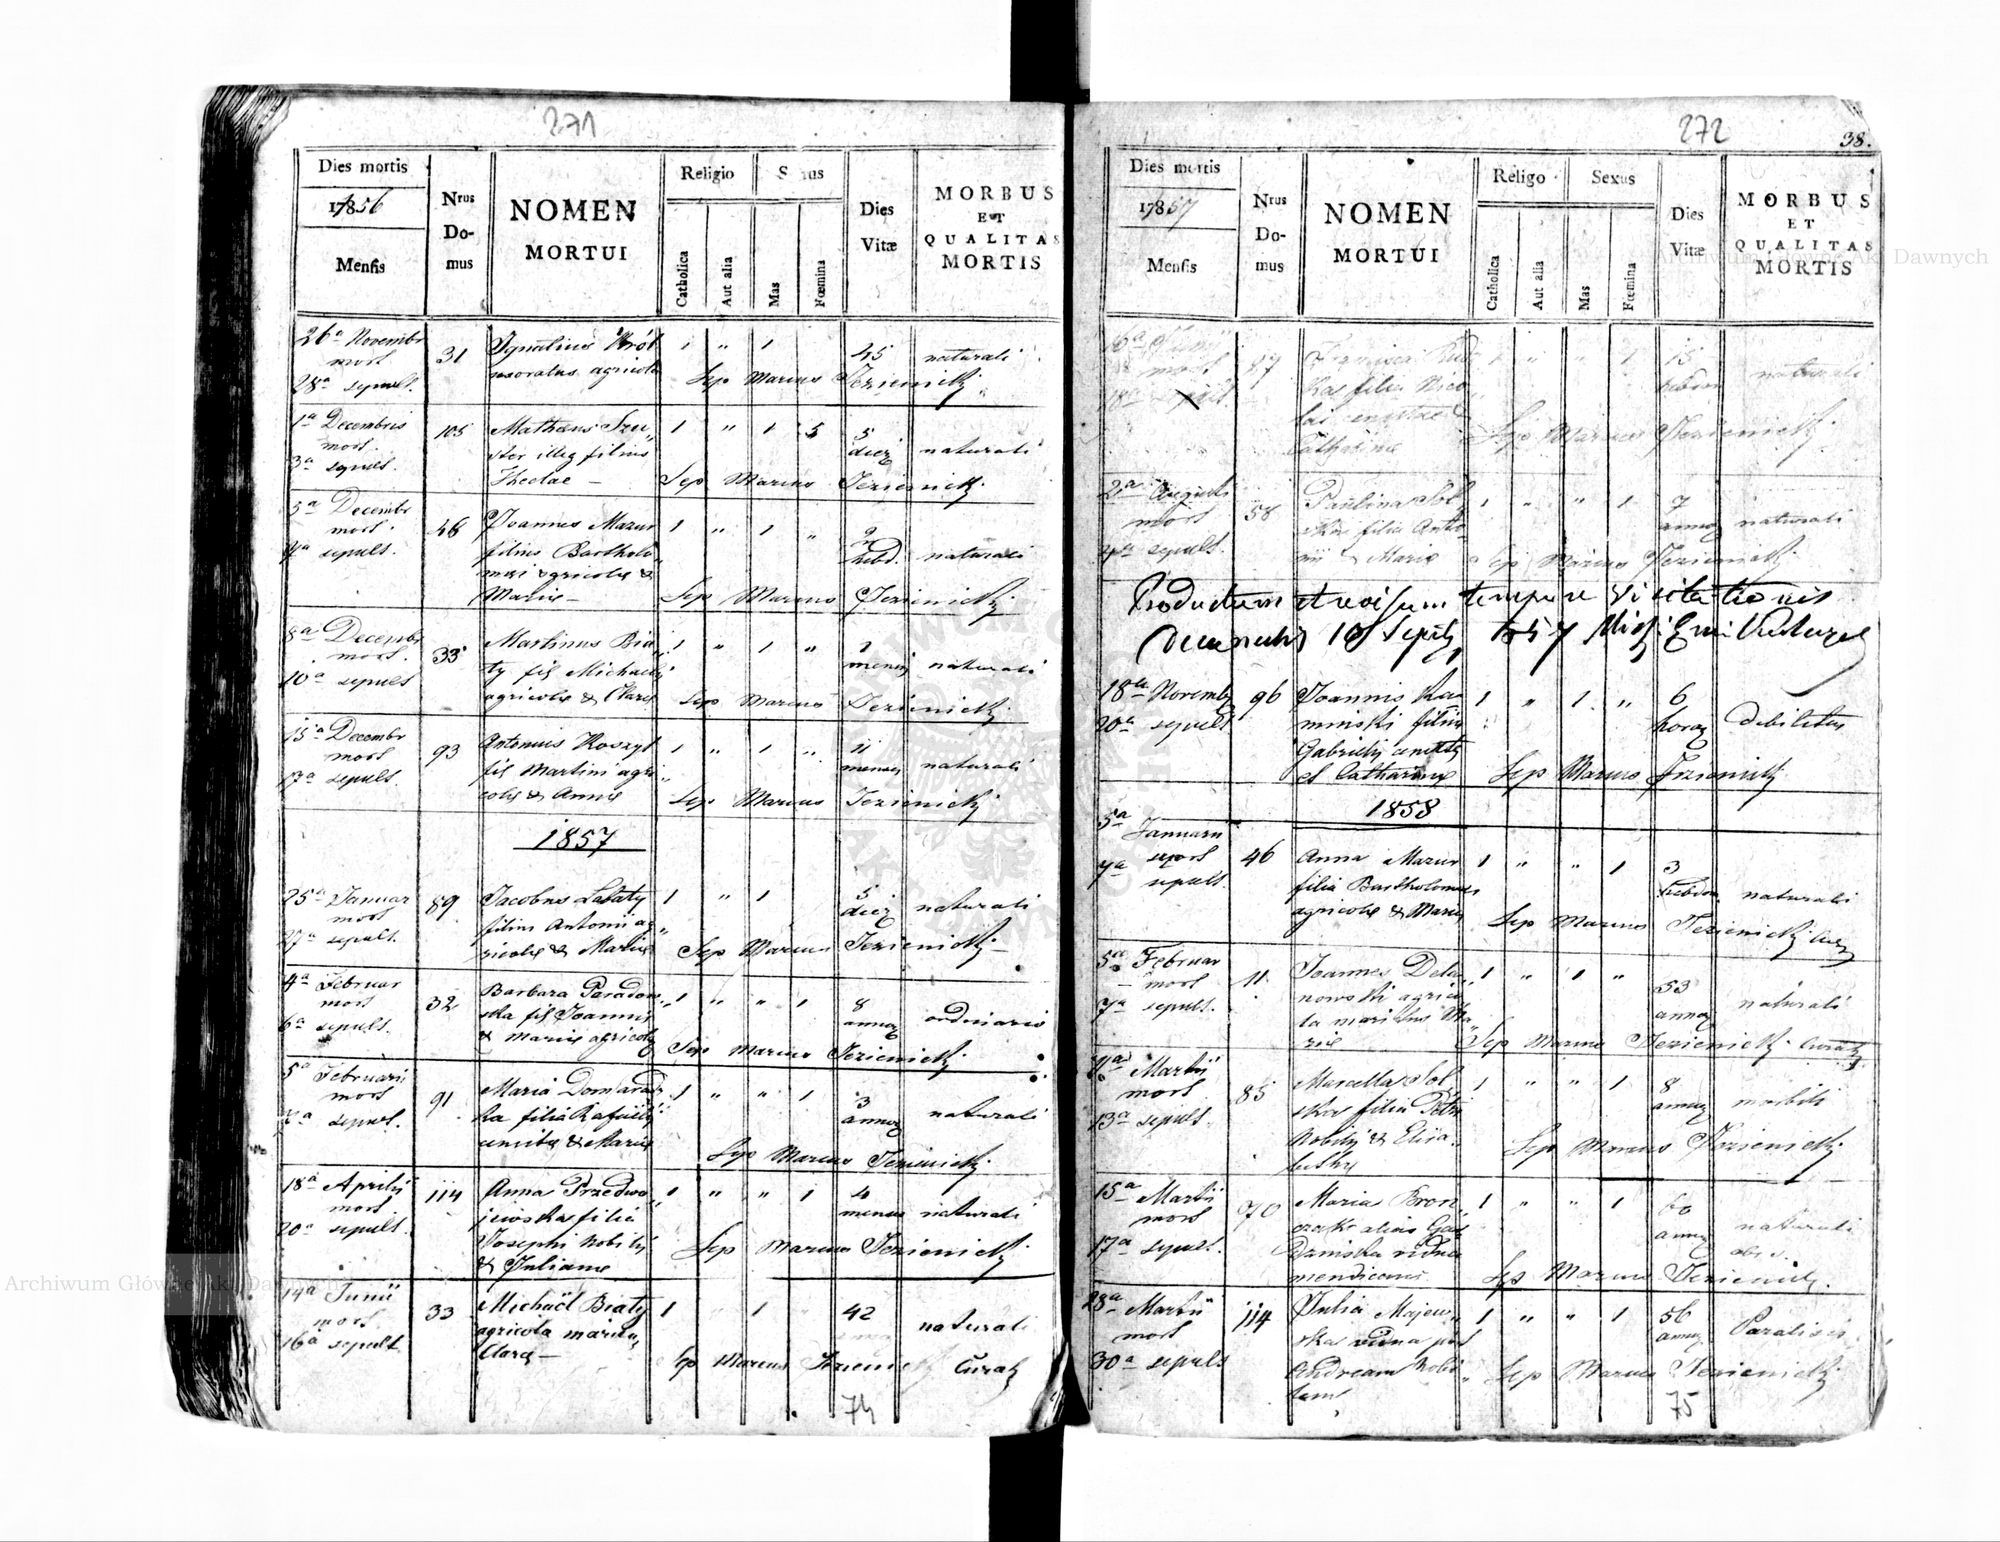 271
Dies mortis
1856
Mensis
Nrus
Do-
mus
NOMEN
MORTUI
Religio
Catholica
Aut alia
Mas
Fœmina
Dies
Vitæ
MORBUS
ET
QUALITAS
MORTIS
26a Novembr
mort
28a sepult.
31
Ignatius Król
uxoratus agricola
1 " 1
45
naturali
Sep Marcus Jezienicki
1a Decembris
mort.
3a sepult.
105
Matheus Szu
ster illeg filius
Theclae —
1 " 1
5
diez
naturali
Sep Marcus Jezienicki
5a Decembr
mort.
7a sepult.
46
Joannes Mazur
filius Bartholo
mei agricolae &
Mariae —
1 " 1 "
2
hebd.
naturali
Sep Marcus Jezienicki
8a Decembr
mort.
10a sepult
33
Martinus Bia
ły fil Michaelis
agricolae & Clarae
1 " 1 "
mensis
naturali
Sep Marcus Jezienicki
15a Decembr
mort
17a sepult.
93
Antonius Koszyl
fil Martini agri
colae & Annae
1 " 1 "
11
mensis
naturali
Sep Marcus Jezienicki
1857
25a Januar
mort
27a sepult.
89
Jacobus Łabaty
filius Antonii ag
ricolae & Mariae
1 " 1
5
diez
naturali
Sep Marcus Jezienicki
4a Februar
mort
6a sepult.
32
Barbara Paradow
ska fil Joannis
& Mariae agricolae
1 " " 1
8
annor
ordinario
Sep Marcus Jezienicki
5a Februarii
mort
7a sepult.
91
Maria Domarad
ka filia
& Mariae
1 " " 1
3
annor
naturali
Sep Marcus Jezienicki
18a Aprilis
mort
20a sepult.
114
Anna Przedwo
jewska filia
Josephi Nobilis
& Julianae
1 " " 1
4
menses
naturali
Sep Marcus Jezienicki
14a Junii
mort
16a sepult
33
Michaël Biały
agricola maritus
Clarae —
1 1
42
naturali
Sep Marcus Jezienicki Curat
74
272
38.
Dies mortis
1857
Mensis
Nrus
Do-
mus
NOMEN
MORTUI
Religo
Sexus
Catholica
Aut alia
Mas
Fœmina
Dies
Vitæ
MORBUS
ET
QUALITAS
MORTIS
16a Junii
mort
18a sepult.
87
Francisca
kas filia Nico
lai
Catharinae
15
hebdom
naturali
Sep Marcus Jezienicki
2a Augusti
mort
4a sepult.
58
Paulina Sol
ska filia Anto
nii & Mariae
1 " " 1
7
annor
naturali
Sep Marcus Jezienicki
Productum et revisum tempore visitationis
Decanalis 10 Septbr 1857
18a Novemb
20a sepult
96
Joannis Ka
minski filius
Gabrielis
et Catharinae
1 " 1 "
6
horar
debilitas
Sep Marcus Jezienicki
1858
5a
Januarii
mort
7a sepult.
46
Anna Mazur
filia Bartholomaei
agricolae & Mariae
1 " " 1
3
hebdom
naturali
Sep Marcus Jezienicki Cur
5a Februar
mort
7a sepult.
11.
Joannes Dela
nowski agrico
la maritus Ma
riae
1 " 1 "
53
annor
naturali
Sep Marcus Jezienicki Curat
Martii
mort
13a sepult.
85
Marcella Sol
ska filia Petri
Nobilis & Elisa
bethae
1 " " 1
8
annor
morbili
Sep Marcus Jezienicki
15a Martii
mort
17a sepult.
70
Maria Bron
czak alias Gaz
dzinska vidua
mendicans
1 " " 1
60
annor
naturali
Sep Marcus Jezienicki
28a Martii
mort
30a sepult
114
Julia Majew
ska vidua post
Andream Nobi
lem
1 " " 1
56
annor
Paralisis
Sep Marcus Jezienicki
75
Archiwum Główne Akt Dawnych
Archiwum Główne Akt Dawnych